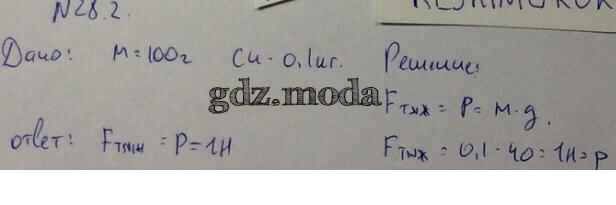 N28.2.
Дано: M=100г Си - 0,1кг. Решение:
gdz.moda
Fтяж = P = м·g.
ответ: Fтяж = P = 1Н
Fтяж = 0,1·10 = 1Н = p